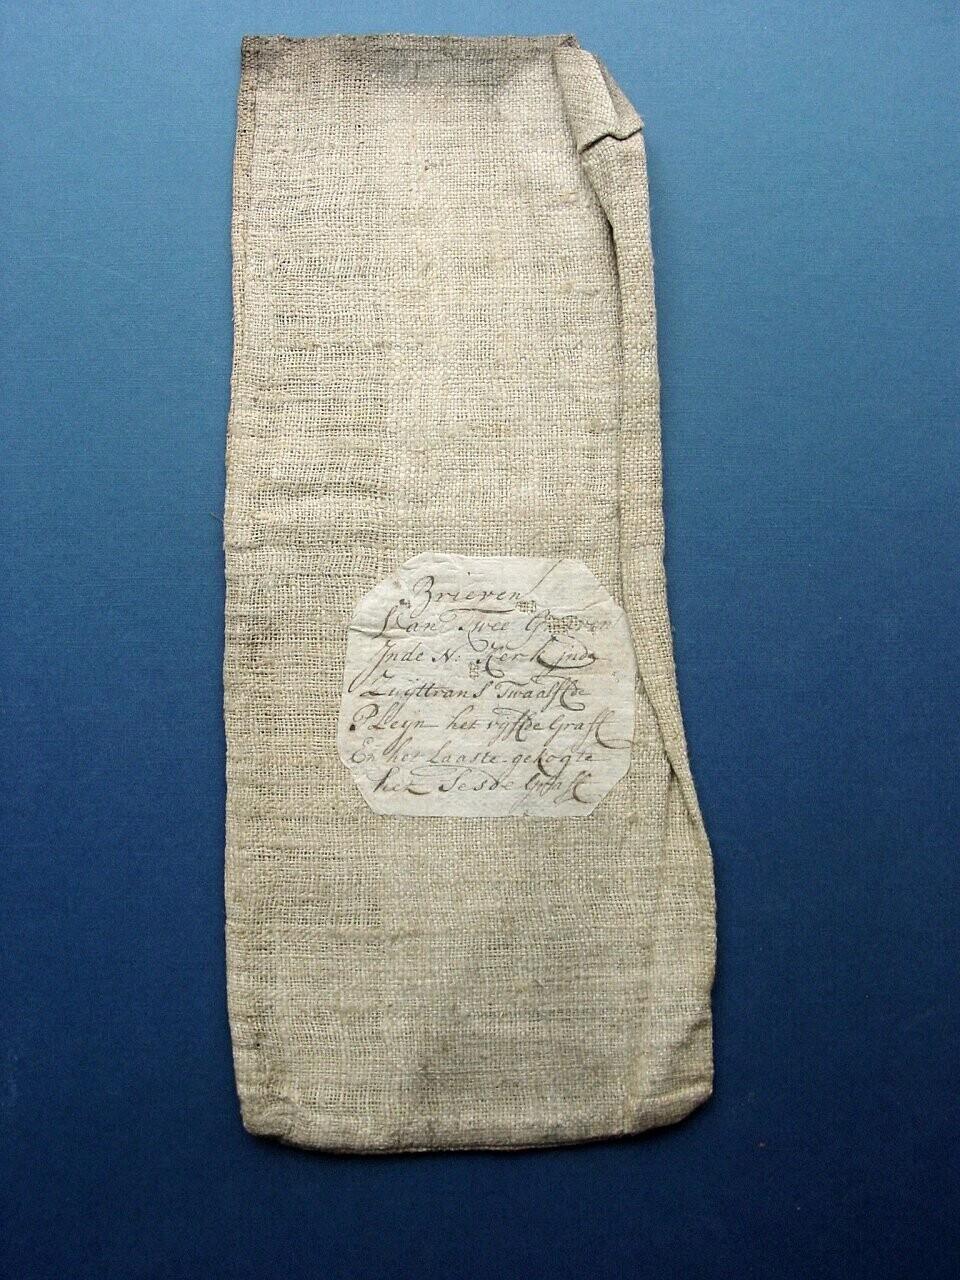 Brieven
Van Twee Graeven
Inde N: Kerk Inde
Zuÿttrans Twaalfde
Pleijn het vyfde Graft
En het Laaste gekogte
het Sesde Graft